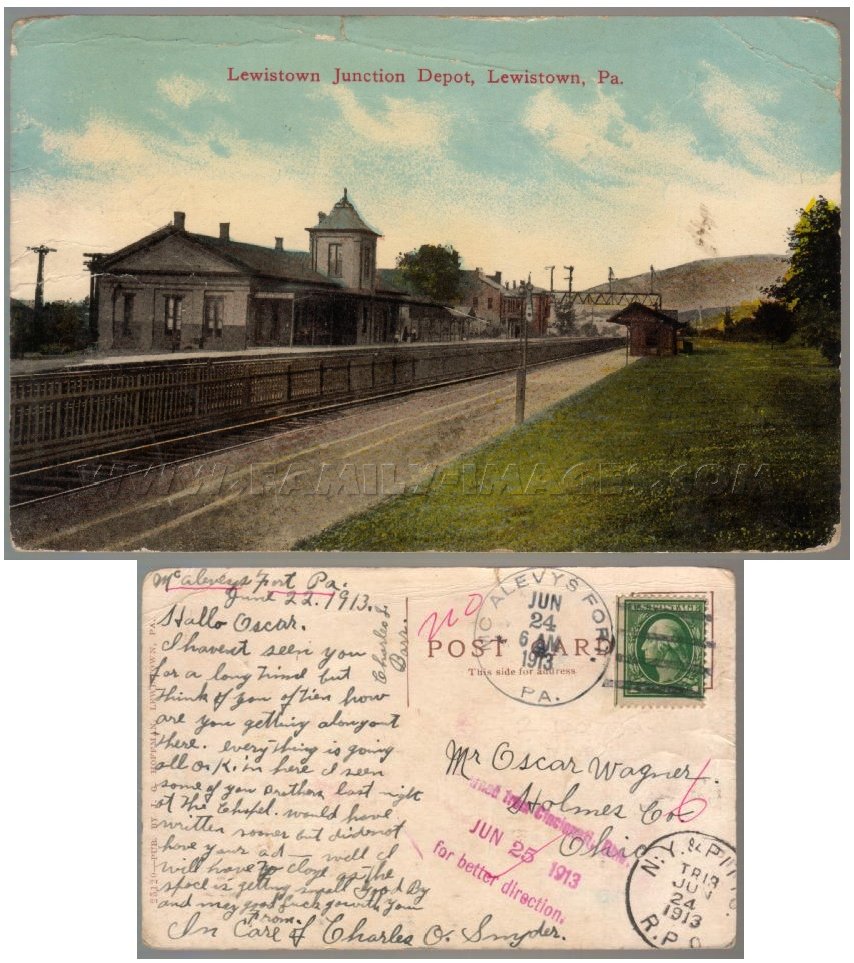 Lewistown Junction Depot, Lewistown, Pa.
WWW.FAMILY-IMAGES.COM
McAlevys Fort Pa.
June 22. 1913.
Hallo Oscar.
I havent seen you
for a long time but
think of you oftien how
are you getting along out
there. everything is going
all O.K. in here I seen
some of you Brothers last night
at the Chapel. would have
written sooner but did not
have your ad- well I
will have to close as the
space is getting small Good By
and may good luck go with you
From.
Charles L
Barr.
In Care of Charles O. Snyder.
PUB. BY J. G. HOFFMAN, LEWISTOWN, PA.
no
POST CARD
This side for address
MC ALEVYS FORT
JUN
24
6 AM
1913
PA.
U.S. POSTAGE
Mr Oscar Wagner.
Holmes Co
Ohio
6
Cincinnati,
JUN 25 1913
for better direction.
N.Y. & PITTS.
TR19
JUN
24
1913
R.P.O.